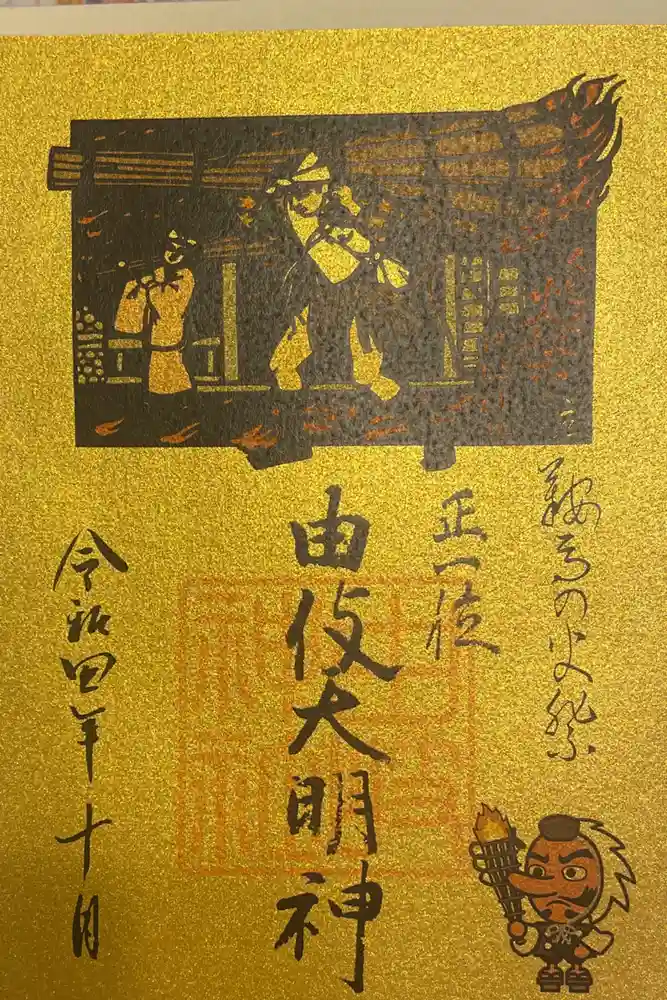 鞍馬の火祭
正一位
由伎大明神
令和四年十月